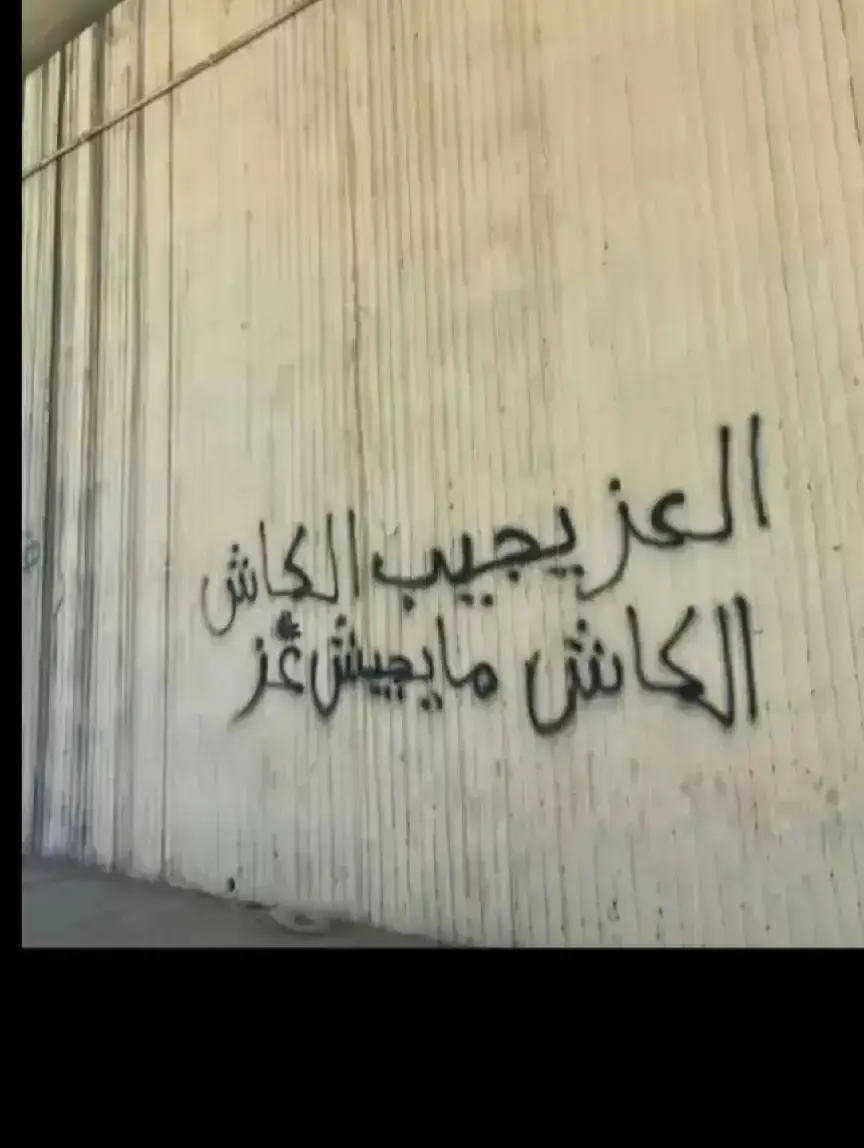 العز يجيب الكاش
الكاش مايجيش عُز